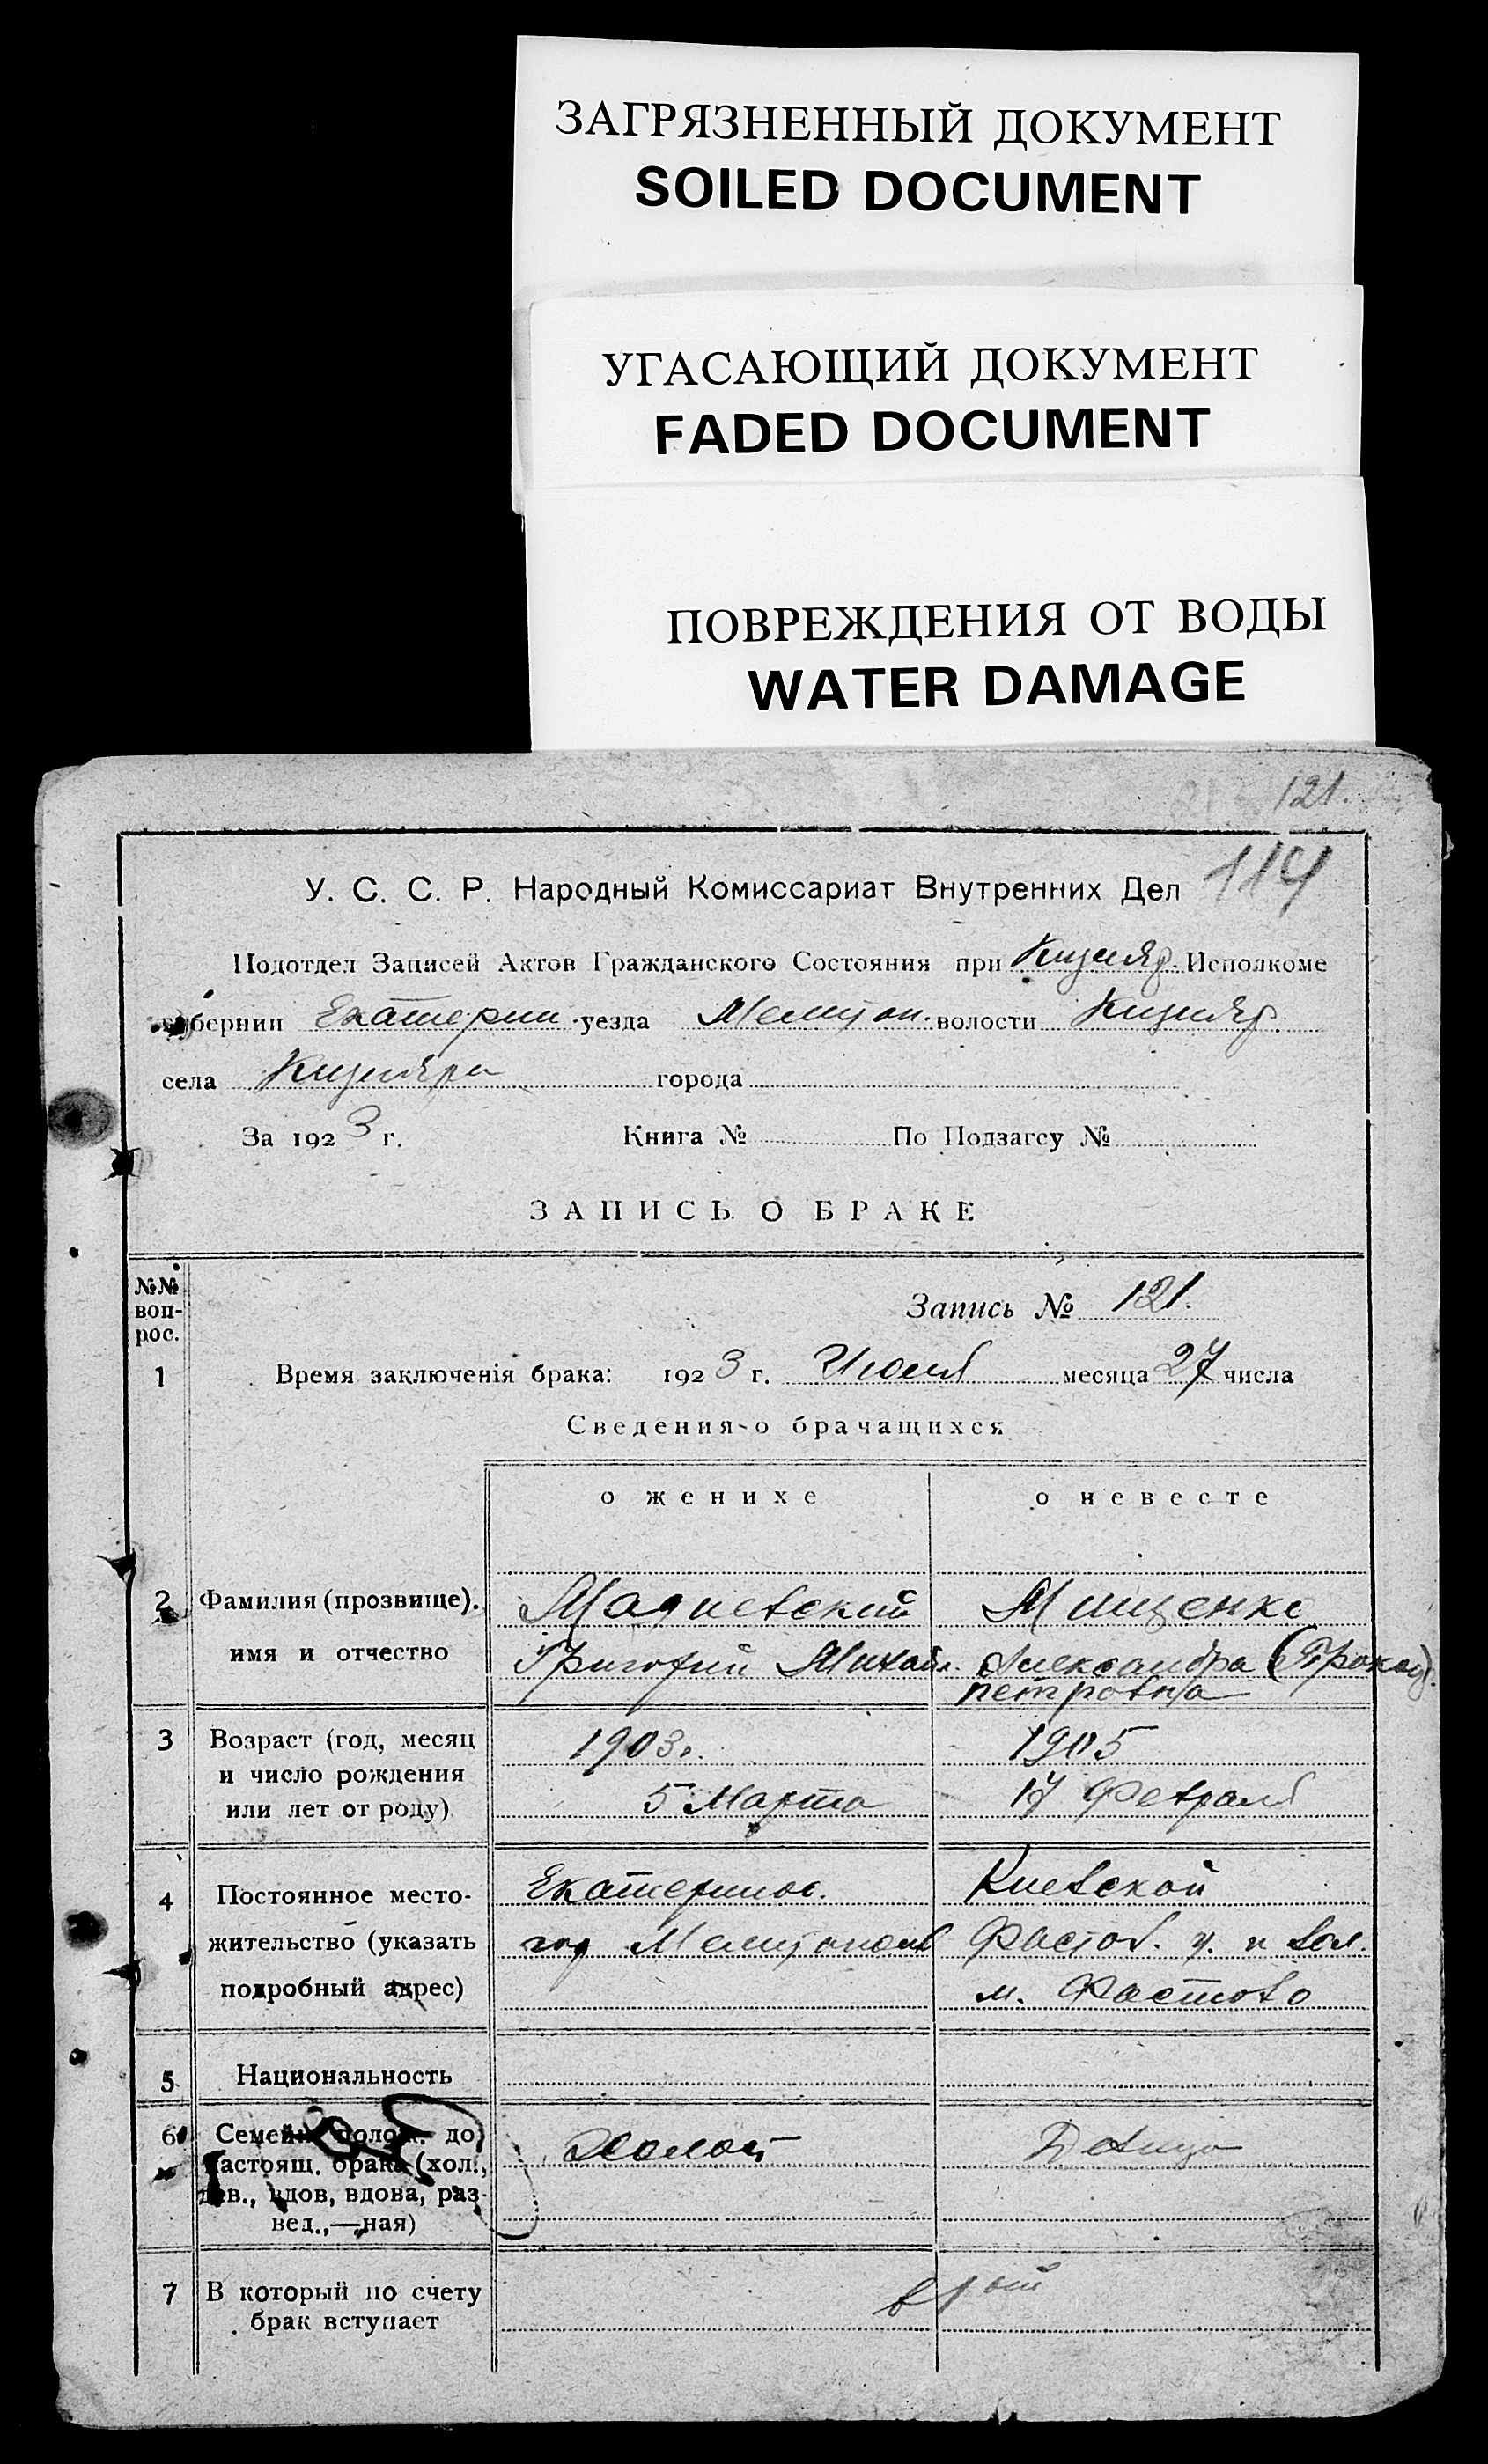 ЗАГРЯЗНЕННЫЙ ДОКУМЕНТ
SOILED DOCUMENT
УГАСАЮЩИЙ ДОКУМЕНТ
FADED DOCUMENT
ПОВРЕЖДЕНИЯ ОТ ВОДЫ
WATER DAMAGE
121.
114
У. С. С. Р. Народный Комиссариат Внутренних Дел
Подотдел Записей Актов Гражданского Состояния при Кизияр. Исполкоме
губернии Екатерин. уезда Мелитоп. волости Кизияр.
села Кизияры города
За 1923 г. Книга № По Подзагсу №
ЗАПИСЬ О БРАКЕ
№№ воп-рос.
Запись № 121.
1 Время заключенія брака: 1923 г. Июля месяца 27 числа
Сведения о брачащихся
о женихе о невесте
2 Фамилия (прозвище). Мищенко
имя и отчество Григорий Михайл. Александра
Петровна
3 Возраст (год, месяц 1903. 1905
и число рождения
или лет от роду) 5 Марта 17 Февраля
4 Постоянное место- Екатеринос. Киевской
жительство (указать гор Мелитополь Фастов. у. и вол.
подробный адрес) м. Фастово
5 Национальность
6 Семейн. полож. до
настоящ. брака (хол., Холост Девица
дев., вдов, вдова, раз-
вед.,—ная)
7 В который по счету в 1ый
брак вступает